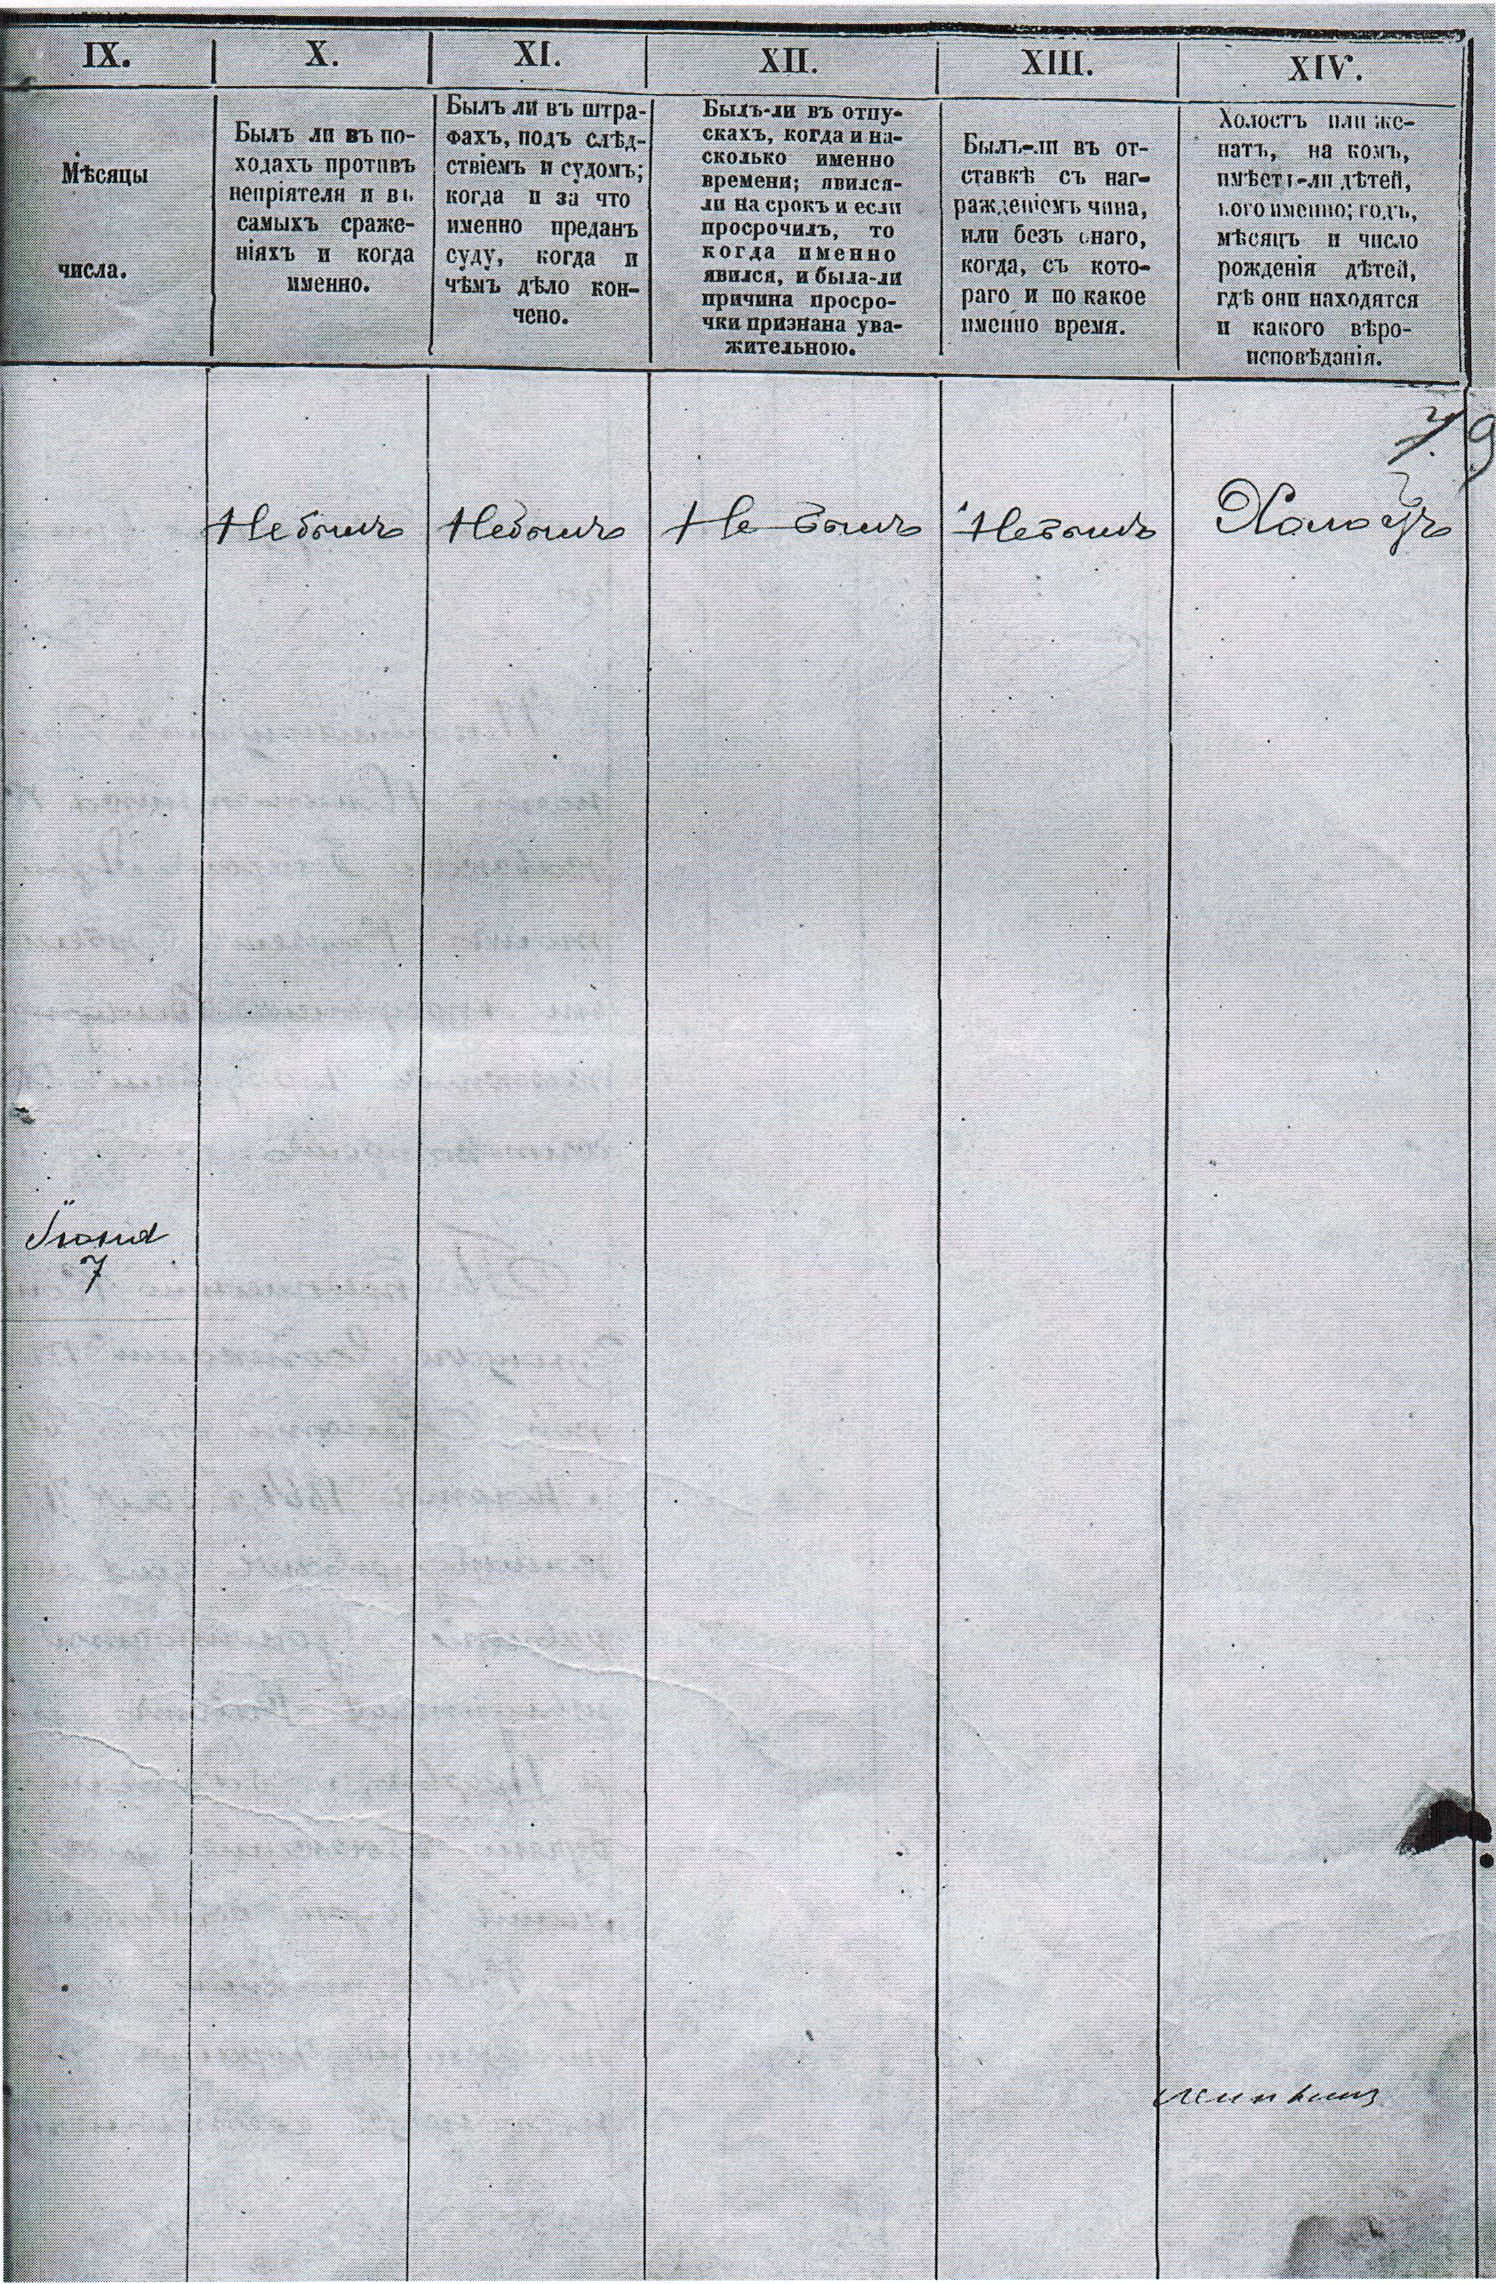 IX.
X.
XI.
XII.
XIII.
XIV.
Мѣсяцы
числа.
Былъ ли въ по-
ходахъ противъ
непріятеля и въ
самыхъ сраже-
ніяхъ и когда
именно.
Былъ ли въ штра-
фахъ, подъ слѣд-
ствіемъ и судомъ;
когда и за что
именно преданъ
суду, когда и
чѣмъ дѣло кон-
чено.
Былъ-ли въ отпу-
скахъ, когда и на-
сколько именно
времени; явился-
ли на срокъ и если
просрочилъ, то
когда именно
явился, и была-ли
причина просро-
чки признана ува-
жительною.
Былъ-ли въ от-
ставкѣ съ наг-
ражденіемъ чина,
или безъ онаго,
когда, съ кото-
раго и по какое
именно время.
Холостъ или же-
натъ, на комъ,
имѣетъ-ли дѣтей,
кого именно; годъ,
мѣсяцъ и число
рожденія дѣтей,
гдѣ они находятся
и какого вѣро-
исповѣданія.
9
Небылъ
Небылъ
Не былъ
Небылъ
Холостъ
Іюня
7